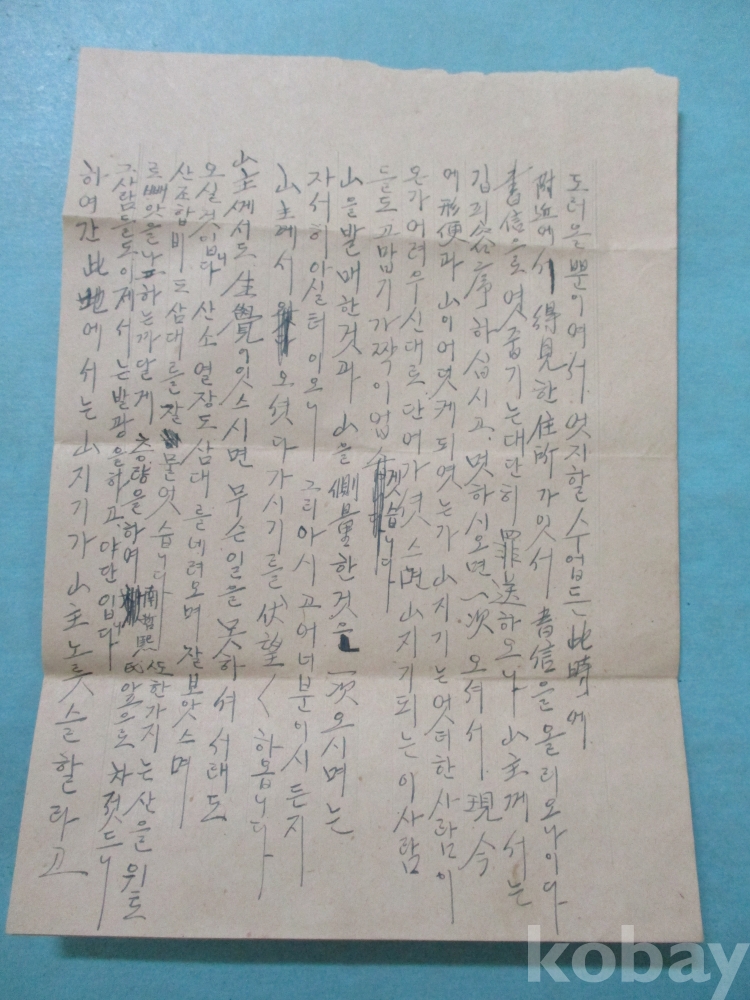 도러울뿐이여서 엇지할수업든此時에
附近에서 得見한住所가잇서 書信을올리오나이다
書信으로 엿줍기는대단히 罪送하오나 山主께서는
하십시고 멋하시오면 一次 오셔서 現今
에形便과 山이어덧케되엿는가 山지기는엇더한사람이
온가어려우신대로단여가셧스면 山지기되는이사람
들도고맙기가짝이업겟습니다
山을발매한것과 山을測量한것을 一次오시며는
자서히아실터이오니 그리아시고어너분이시든지
山主께서 오셧다가시기를 伏望 하옵니다
山主께서도 生覺이잇스시면 무슨일을못하셔서래도
오실것이입니다 산소열장도삼대를네려오며 잘보앗스며
산조합비도삼대를잘물엇습니다 또한가지는산을위토
로빼앗을나고하는까닭게 층량을하며 南 熙氏앞으로차젓드니
그사람들도이제서는발광을하고야단입니다
하여간此地에서는山지기가山主노릇슬할라고
kobay